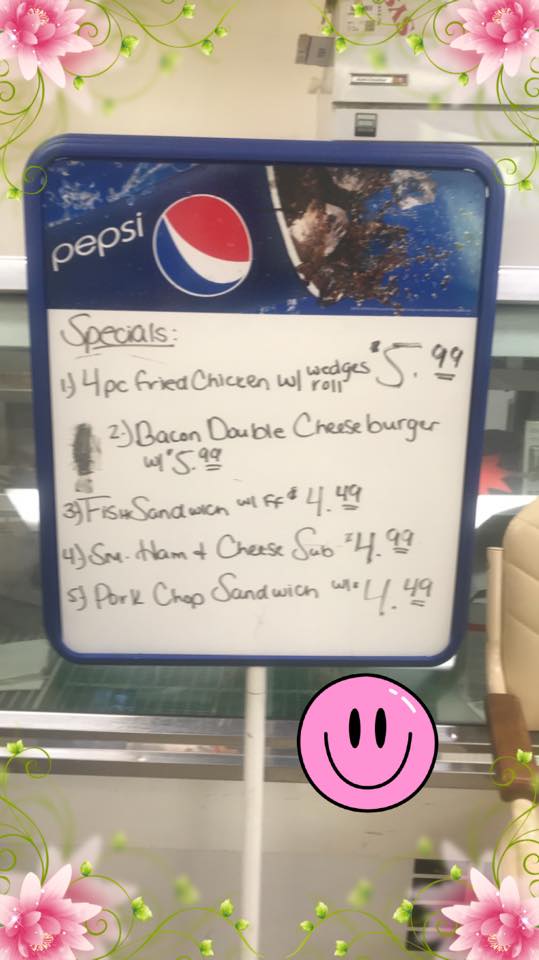 pepsi
Specials:
1) 4pc fried Chicken w/ wedges roll $5.99
2.) Bacon Double Cheeseburger
w/ $5.99
3) Fish Sandwich w/ FF $4.49
4) Sm. Ham + Cheese Sub $4.99
5) Pork Chop Sandwich w/ $4.49